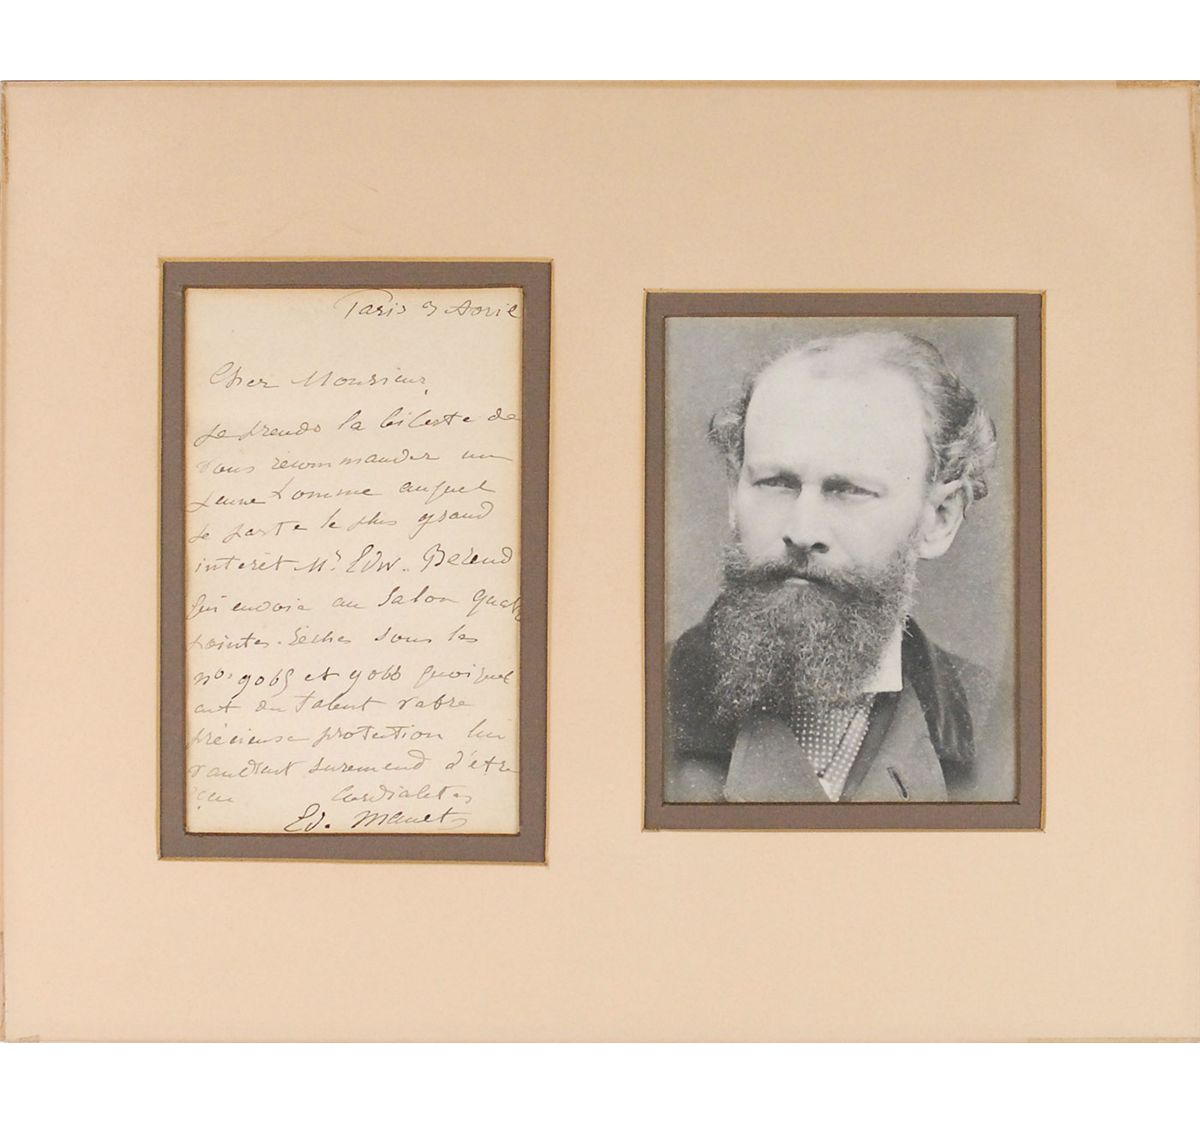 Paris 3 Avril
Cher Monsieur,
je prends la liberté de
vous recommander un
jeune homme auquel
je porte le plus grand
interêt Mr. Edw. Berend
qui envoie au Salon quatre
pointes-sèches sous les
nos. 9065 et 9066 quoiqu'il
ait du talent votre
précieuse protection lui
vaudrait surement d'être
reçu Cordialités
Ed. Manet